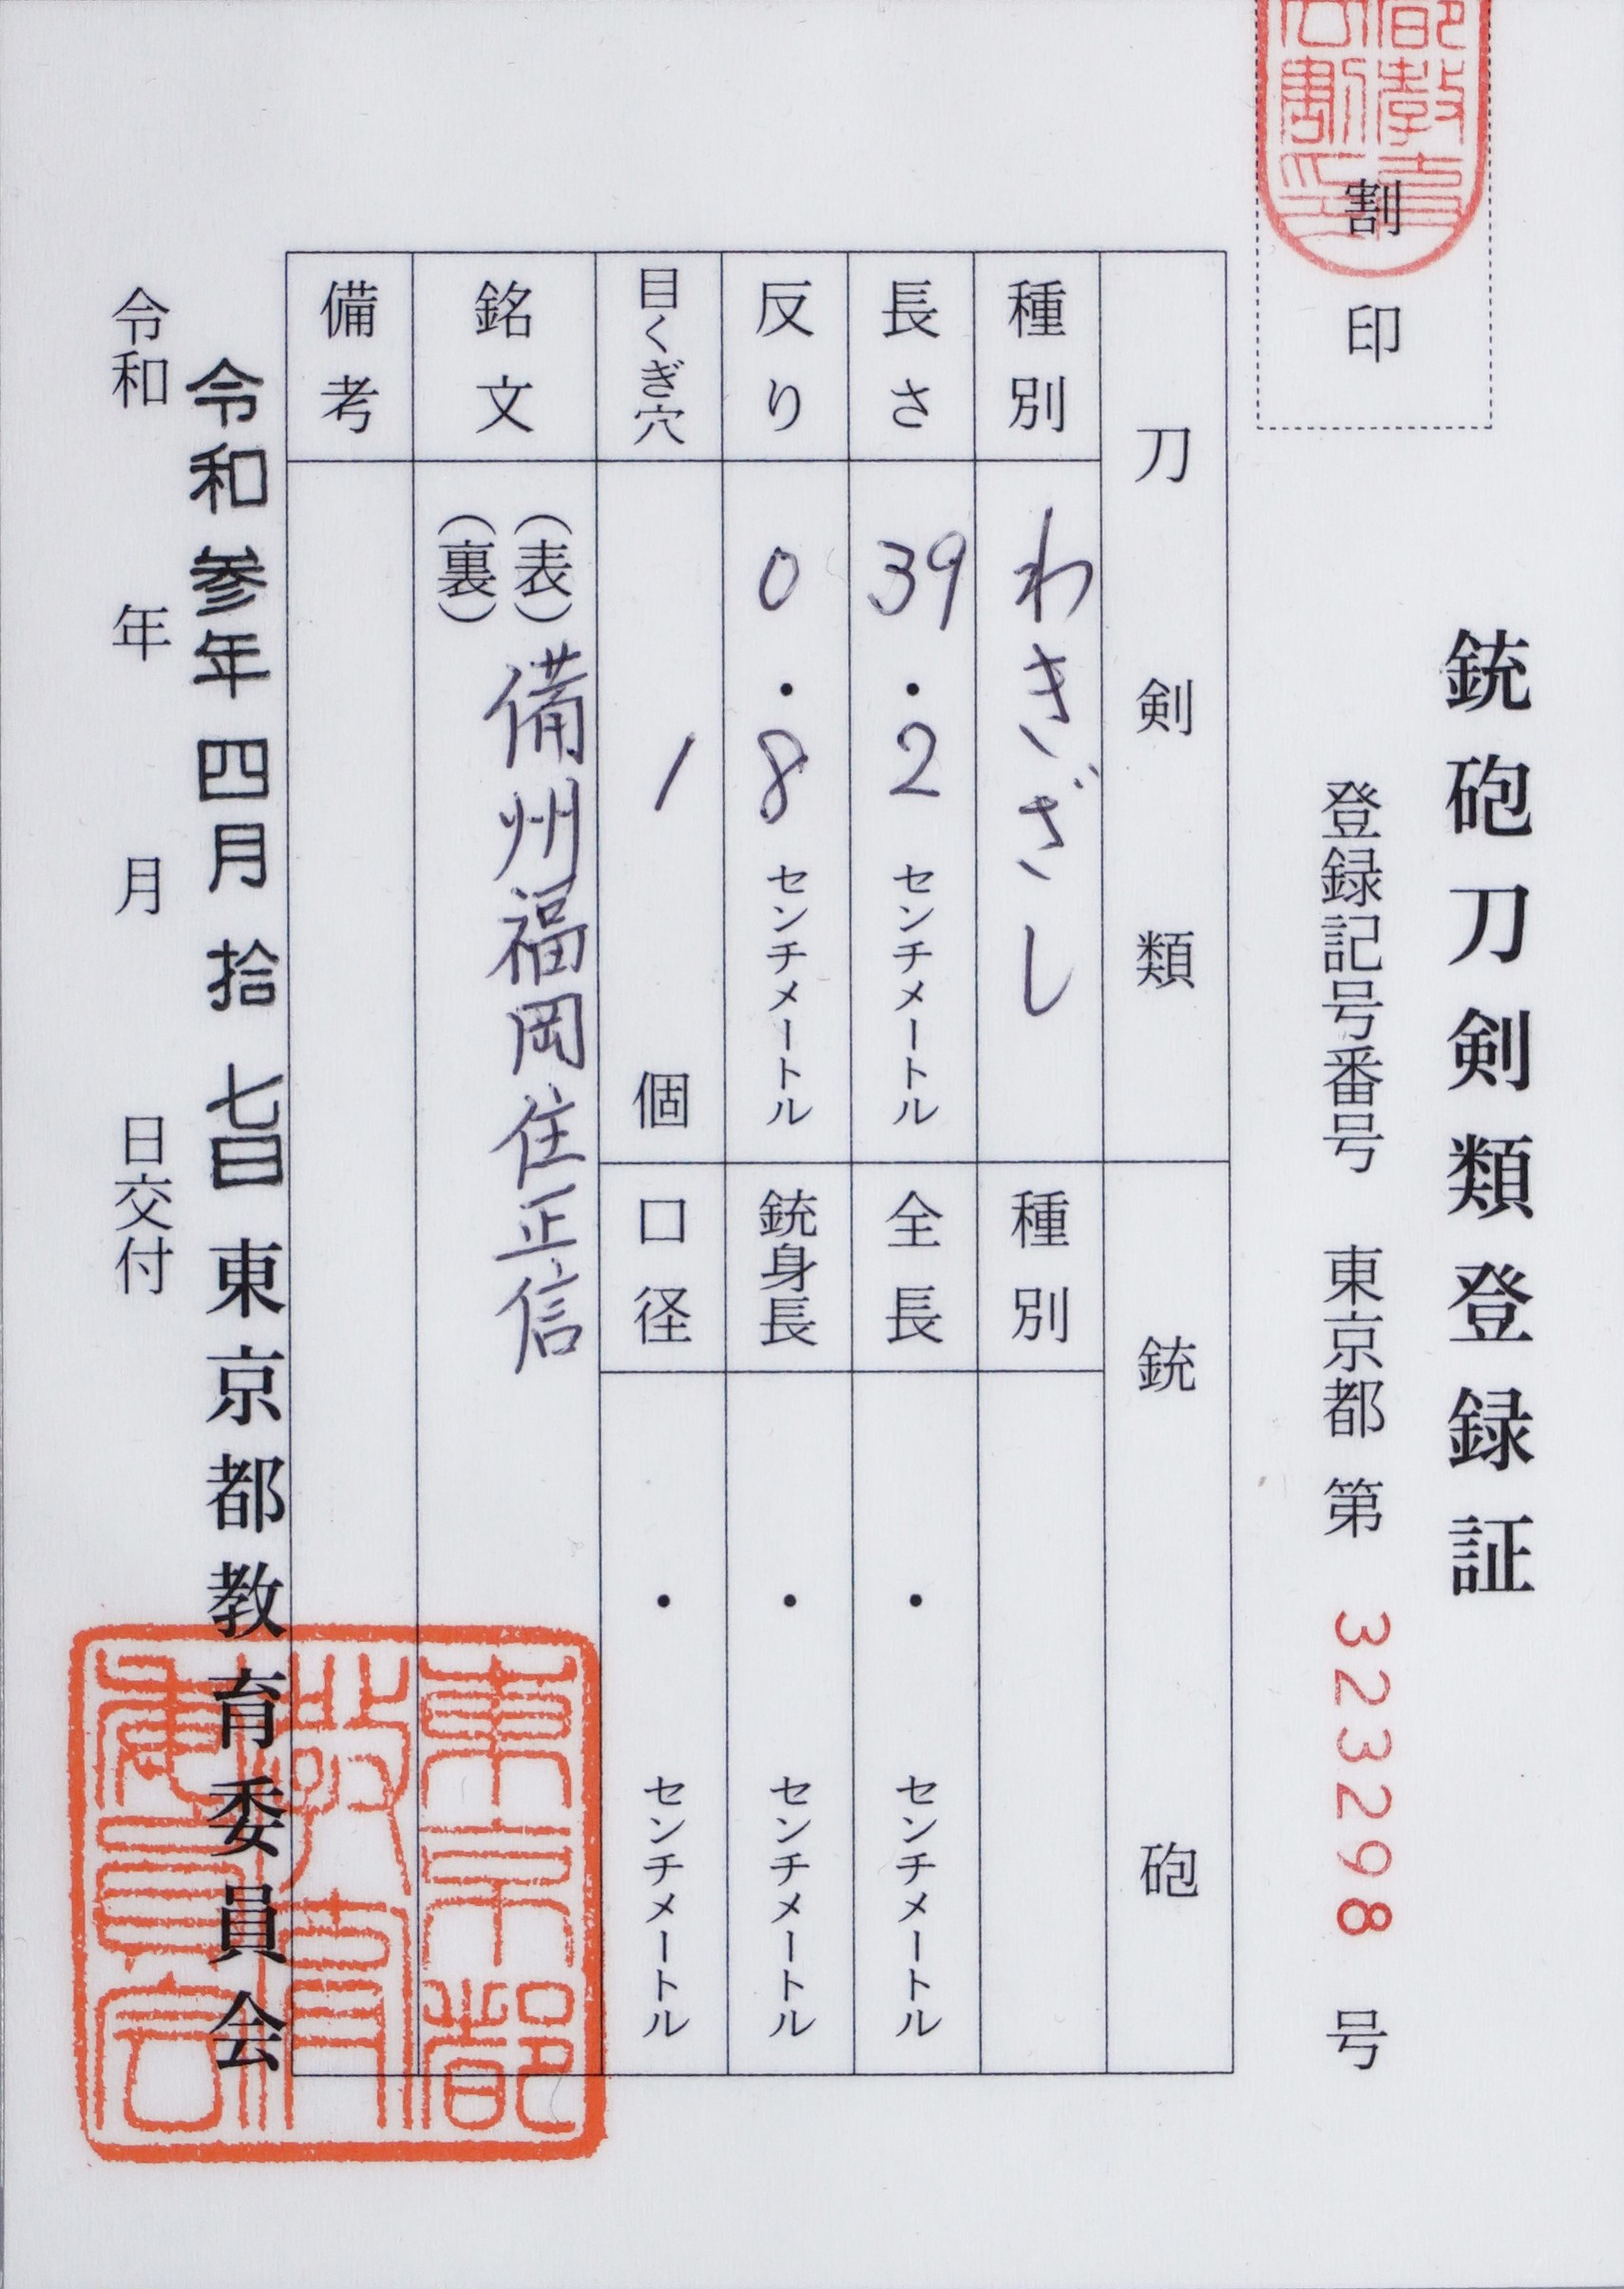 銃砲刀剣類登録証
登録記号番号 東京都 第 323298 号
割印
刀剣類
銃砲
種別 わきざし
種別
長さ 39.2 センチメートル
全長 ・ センチメートル
反り 0.8 センチメートル
銃身長 ・ センチメートル
目くぎ穴 1 個
口径 ・ センチメートル
銘文 (表) 備州福岡住正信
(裏)
備考
令和参年四月拾七日 東京都教育委員会
令和 年 月 日交付
東京都
教育
委員会